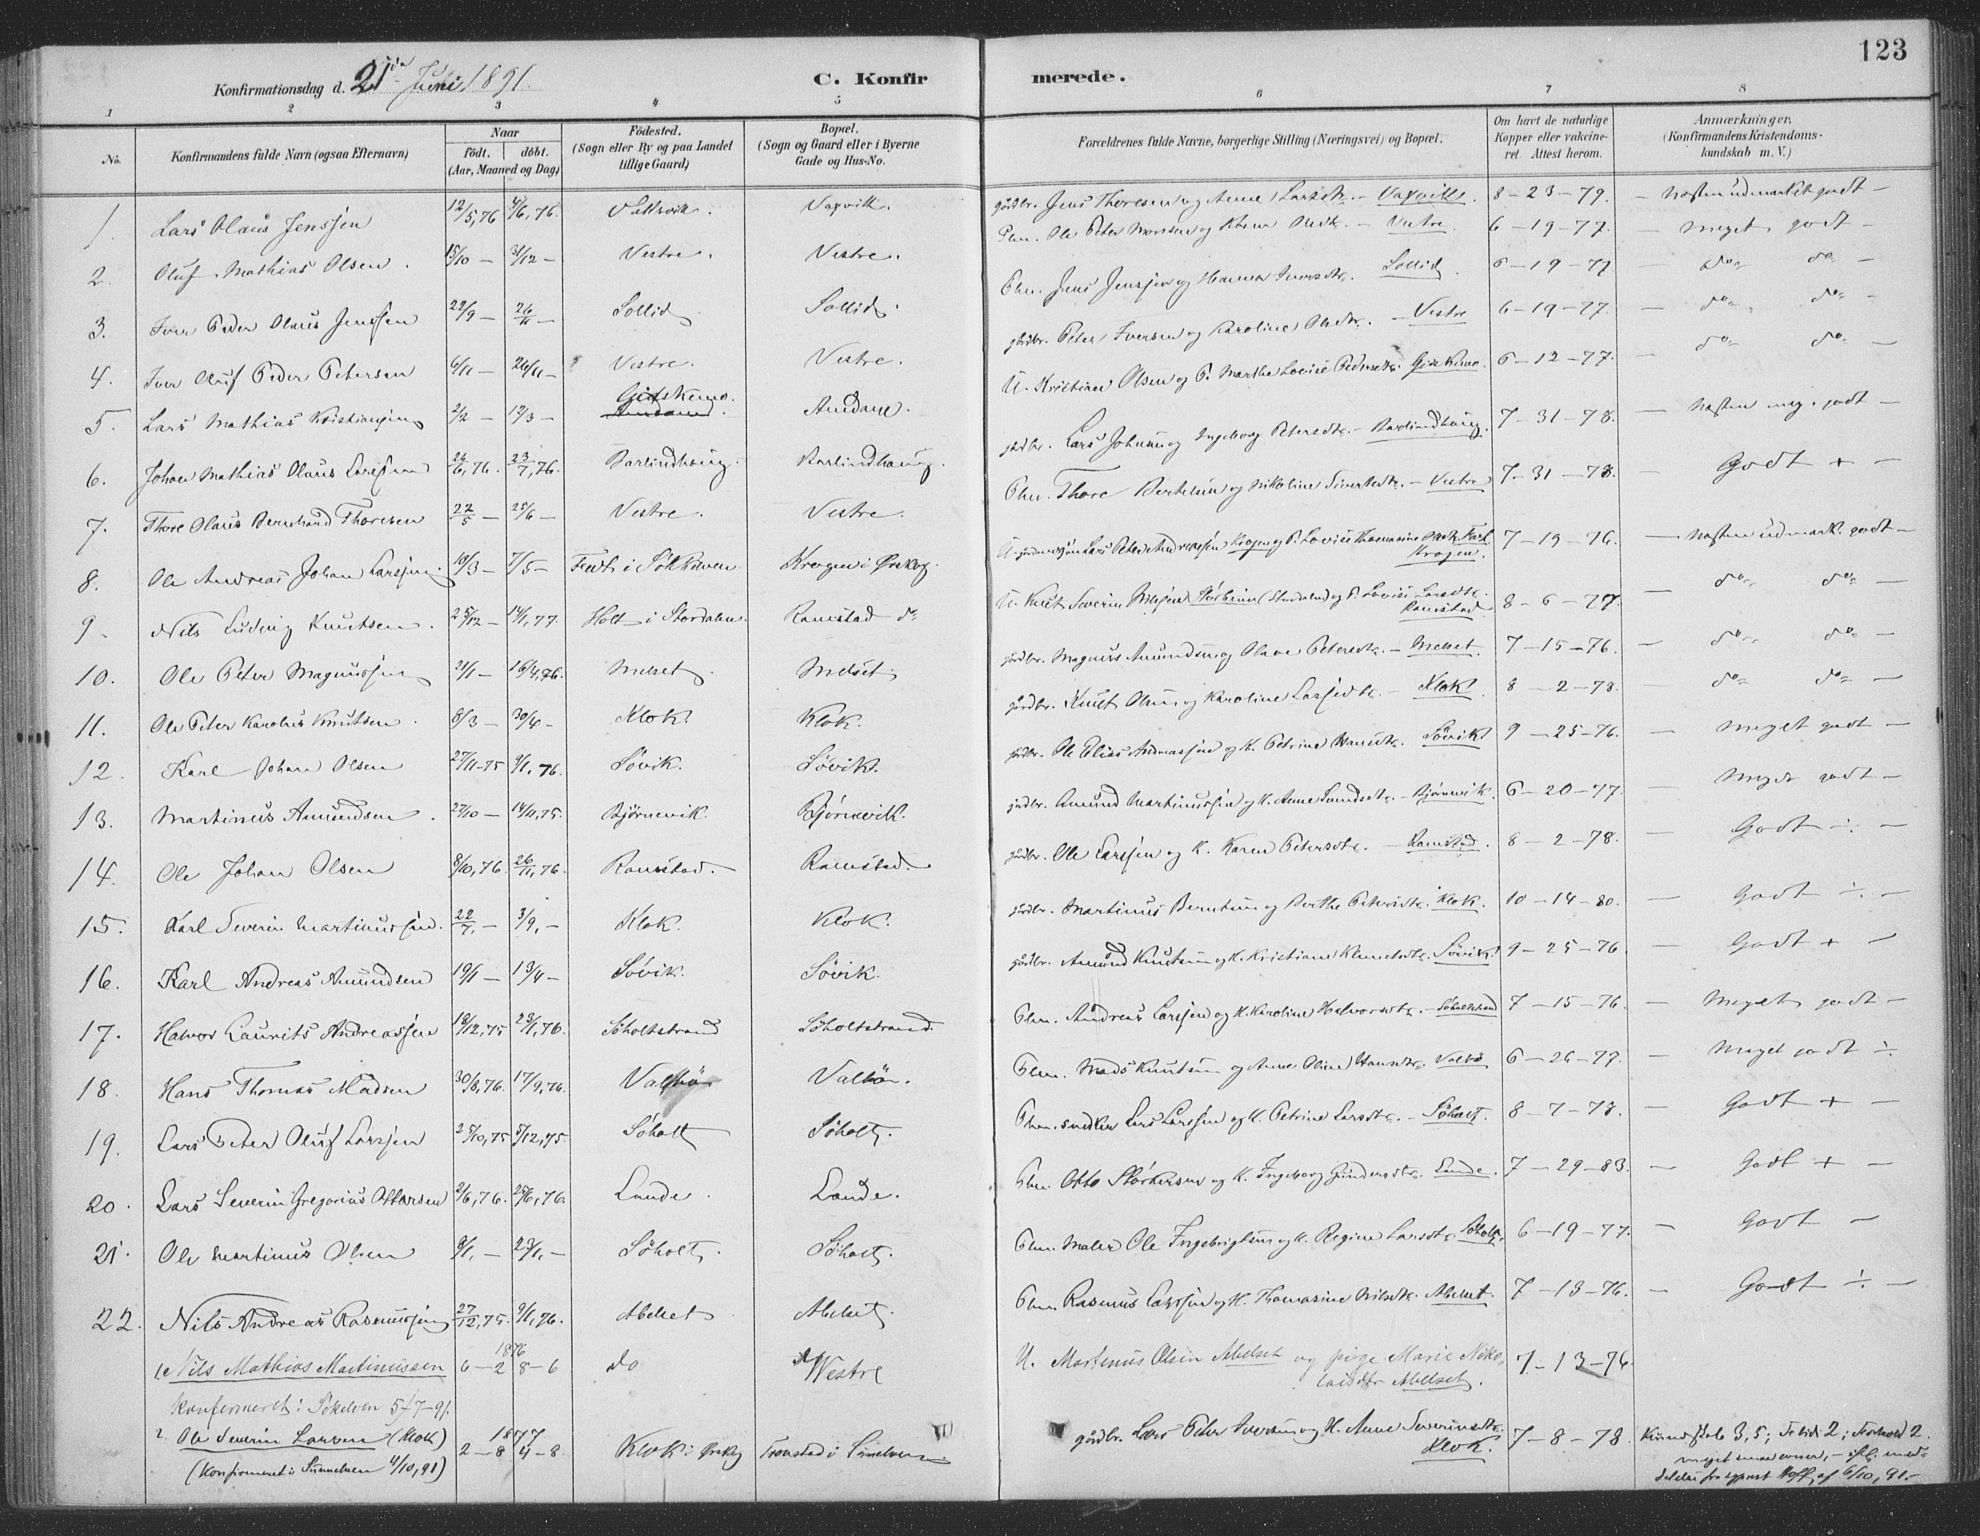 123
Konfirmationsdag d. 21de Juni 1891.
C. Konfirmerede.
1 2 3 4 5 6 7 8
No. Konfirmandens fulde Navn (ogsaa Efternavn) Naar födt. döbt. (Aar, Maaned og Dag) Födested. (Sogn eller By og paa Landet tillige Gaard) Bopæl. (Sogn og Gaard eller i Byerne Gade og Hus-No. Forældrenes fulde Navne, borgerlige Stilling (Næringsvei) og Bopæl. Om havt de naturlige Kopper eller vakcineret. Attest herom. Anmærkninger. (Konfirmandens Kristendomskundskab m. V.)
1. Lars Olaus Jenssen 12/5,76 4/6,76. Vaxvik. gårdbr. Jens Thoresen og Anne Larsdtr. – Vaxvik 8–23–79. – Næsten udmærket godt –
2. Oluf Mathias Olsen. 15/10 – 31/12 – Vestre. Vestre. Plm. Ole Peter Monsen og Olsdtr. – Vestre. 6–19–77. – Meget godt –
3. Iver Peder Olaus Jenssen 22/9 – 26/11 – Sollid Sollid. Plm. Jens Jenssen og Hanna Iversdtr. Sollid. 6–19–77 – do do –
4. Iver Oluf Peder Petersen 6/11 – 26/11 – Vestre. Vestre. gårdbr. Peter Iversen og Karoline Olsdtr. – Vestre 6–19–77. – do do –
5. Lars Mathias Kristiansen 2/2 – 12/3 – Gidskemo. Amdam. Amdam. U. Kristian Olsen og P. Marthe Lovise Pedersdtr. Gidskemo. 6–12–77. – do do –
6. Johan Mathias Olaus Larssen 26/6,76. 23/7,76. Barlindhaug. Barlindhaug. gårdbr. Lars Johnsen og Ingeborg Petersdtr. – Barlindhaug. 7–31–78. – Næsten meg. godt –
7. Thore Olaus Bernhard Thoresen 22/5 – 25/6 – Vestre. Vestre. Plm. Thore Bertelsen og Nikoline Sivertsdtr. – Vestre 7–31–78. – Godt + –
8. Ole Andreas Johan Larssen. 18/3 – 7/5 – i Sökkelven Krogen i Ørskog. Lars Peter Andreassen Krogen og P. Lovise Thomasine Krogen. 7–19–76. – Næsten udmærk. godt –
9. Nils Ludvig Knutsen. 25/12 – 14/1,77. Holt i Stordalen. Ramstad do U. Knut Severin (Stordalen) og P. Lovise Larsdtr. Ramstad 8–6–77. – do do –
10. Ole Peter Magnussen 21/1 – 16/4,76. Melset. Melset. gårdbr. Magnus Amundsen og Olave Petersdtr. – Melset. 7–15–76. – do do –
11. Ole Peter Karolus Knutsen. 8/3 – 30/4 – Klok. Klok. gårdbr. Knut Olsen og Karoline Larsdtr. – Klok 8–2–78. – do do –
12. Karl Johan Olsen 27/11–75 9/1,76. Søvik. Søvik. gårdbr. Ole Elias Andreassen og K. Petrine Hansdtr. Søvik 9–25–76. – Meget godt –
13. Martinus Amundsen. 27/10 – 14/11,75. Bjørnevik. Bjørnevik. gårdbr. Amund Martinussen og K. Anne Larsdtr. – Bjørnevik. 6–20–77. – Meget godt –
14. Ole Johan Olsen 8/10,76. 26/11,76. Ramstad. Ramstad. gårdbr. Ole Larssen og K. Karen Petersdtr. – Ramstad. 8–2–78. – Godt ÷ –
15. Karl Severin Martinussen. 22/7,– 3/9,– Klok. Klok. gårdbr. Martinus Berntsen og Berthe Petersdtr. Klok. 10–14–80. – Godt ÷ –
16. Karl Andreas Amundsen 19/1 – 17/4 – Søvik. Søvik. gårdbr. Amund Knutsen og K. Kristiane Knutsdtr. Søvik. 9–25–76. – Godt + –
17. Halvor Laurits Andreassen 18/12,75 23/1,76. Søholtstrand Søholtstrand. Plm. Andreas Larssen og K. Karoline Halvorsdtr. – Søholtstrand 7–15–76. – Meget godt –
18. Hans Thomas Madsen 30/8,76. 17/9,76. Valbø Valbøn. Plm. Mads Knutsen og Anne Oline Hansdtr. Valbø 6–26–77. – Meget godt ÷
19. Lars Peter Oluf Larssen 25/10,75 5/12,75. Søholt Søholt. Plm. snedker Lars Larssen og K. Petrine Larsdtr. – Søholt. 8–7–78. – Godt + –
20. Lars Severin Gregorius Ottersen 2/6,76. 25/6,76. Lande. Lande. Plm. Otto Størkersen og K. Ingeborg Gundersdtr. Lande. 7–29–83. – Godt + –
21. Ole Martinus Olsen 9/1,– 23/1,– Søholt. Søholt. Plm. Maler Ole Ingebrigtsen og K. Regine Larsdtr. Søholt. 6–19–77. – Godt –
22. Nils Andreas Rasmussen 27/12,75. 9/1,76. Abelset Abelset. Plm. Rasmus Larssen og K. Thomasine Nilsdtr. Abelset. 7–13–76. – Godt ÷ –
1. Nils Mathias Martinussen 1876 6–2 8–6 do Westre U. Martinus Olsen Abelset og pige Marie Nikolaisdtr Abelset. 7–13–76.
konfirmeret i Søkelven 5–7–91.
2 Ole Severin Larsen (Klok) 1877 2–8 4–8. Klok i Ørskog Tronstad i Sunelven. gårdbr. Lars Peter Iversen og K. Anne Severinsdtr. Klok. 7–8–78. Kundskab 3,5; Flid 2; Forhold 2.
(Konfirmeret i Sunnelven 4/10,91)